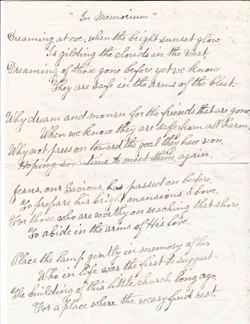 "In Memorium"
Dreaming at eve, when the bright sunset glow
Is gilding the clouds in the west.
Dreaming of those gone before yet we know
They are safe in the arms of the blest.
Why dream and mourn for the friends that are gone,
When we know they are safe from all harm
Why not press on toward the goal they have won
Hoping sometime to meet them again.
Jesus, our Saviour, has passed on before,
To prepare his bright mansions above
For those who are worthy on reaching that shore
To abide in the arms of His love.
Place the lamp gently in memory of her
Who in life was the first to suggest
The building of this little church long ago
For a place where the weary find rest.